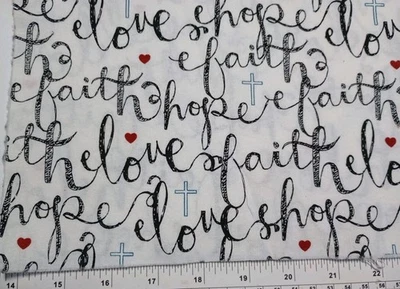 love hope love
faith
faith hope faith
ith love faith
hope love hope
14 15 16 17 18 19 20 21 22